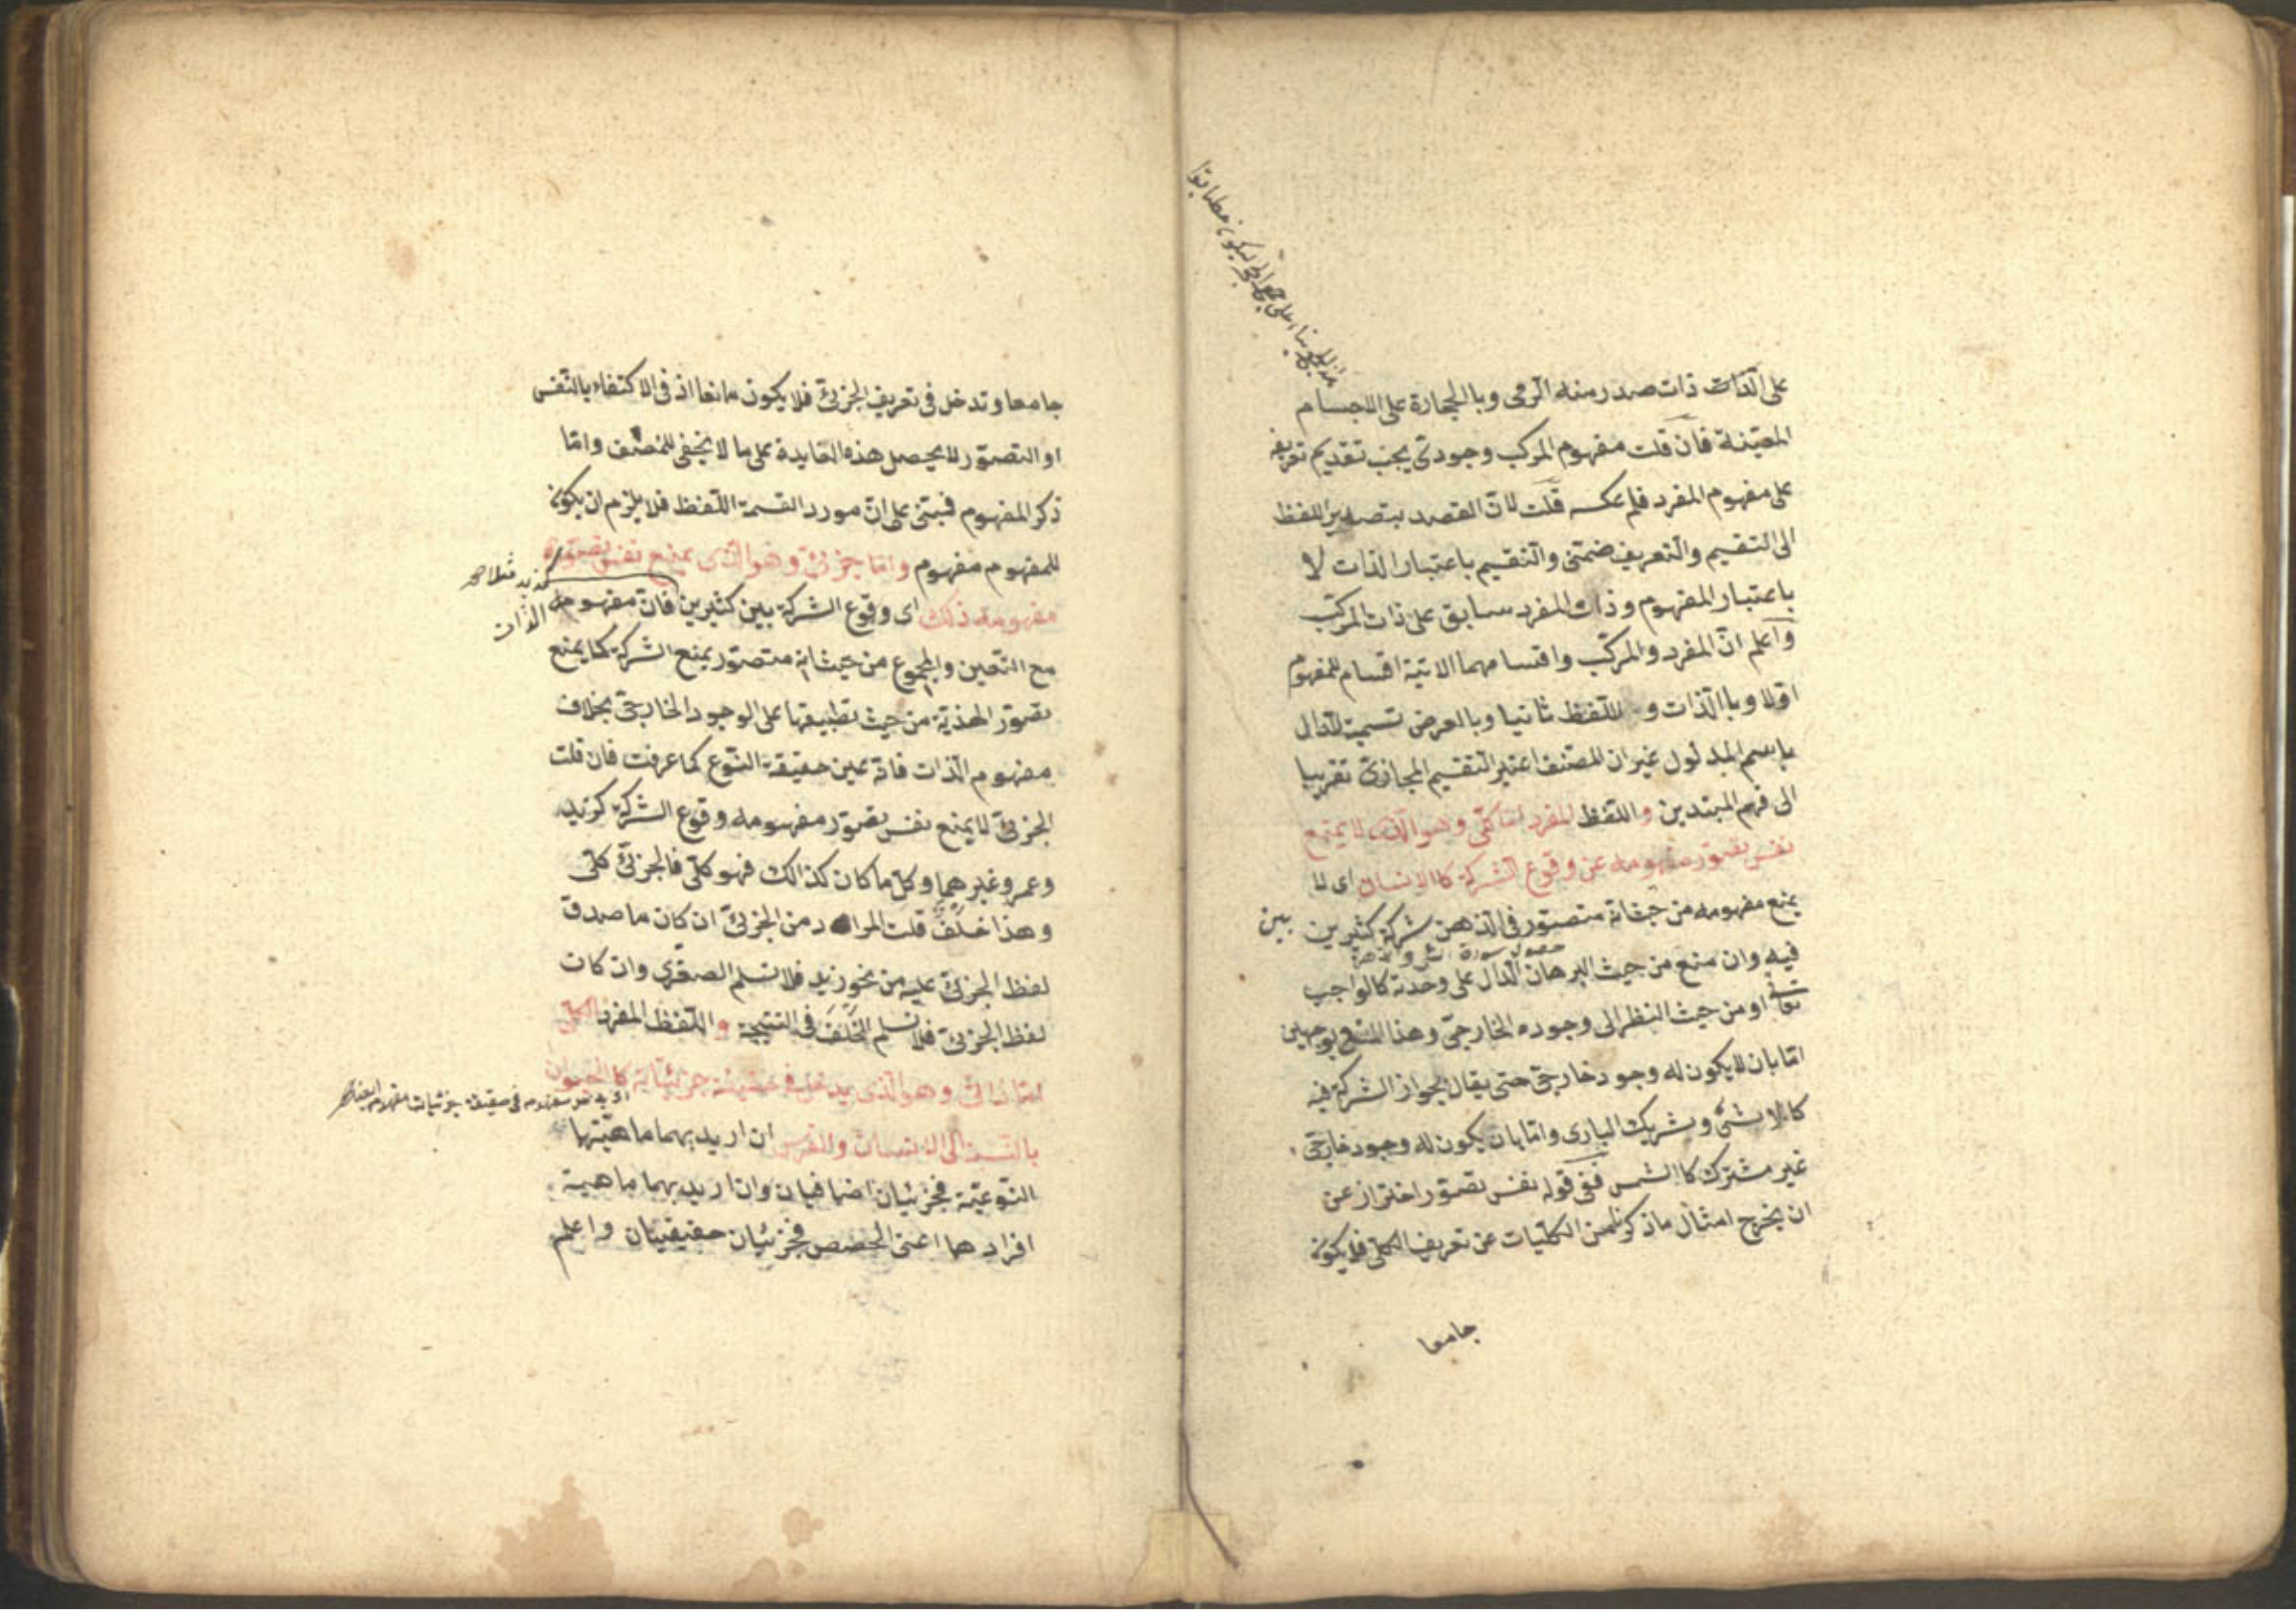 على الذات ذات صدر منه الرمى وبالحجارة على الاجسام
المعينة فان قلت مفهوم المركب وجودى يجب تقديم تعريفه
على مفهوم المفرد فلم عكسه قلت لان القصد بتصدير اللفظ
الى التقسيم والتعريف ضمنى والتقسيم باعتبار الذات لا
باعتبار المفهوم وذات المفرد سابق على ذات المركب
واعلم ان المفرد والمركب واقسامهما الاتية اقسام للمفهوم
اولا وبالذات و للفظ ثانيا وبالعرض تسمية للدال
باسم المدلول غير ان المصنف اعتبر التقسيم المجازى تقريبا
الى فهم المبتدين واللفظ المفرد اما كلى وهو الذى لا يمنع
نفس تصور مفهومه عن وقوع الشركة كالانسان اى لا
يمنع مفهومه من حيث انه متصور فى الذهن شركة كثيرين بين
فيه وان منع من حيث البرهان الدال على وحدته كالواجب
تعالى او من حيث النظر الى وجوده الخارجى وهذا المنع بوجهين
اما بان لا يكون له وجود خارجى حتى يقال بجواز الشركة فيه
كاللاشئ وشريك البارى واما بان يكون له وجود خارجى
غير مشترك كالشمس ففى قوله نفس تصور احتراز عن
ان يخرج امثال ما ذكرنا من الكليات عن تعريف الكلى فلا يكون
جامعا
جامعا وتدخل فى تعريف الجزئى فلا يكون مانعا اذ فى الاكتفاء بالنفس
او التصور لا يحصل هذه الفايدة على ما لا يخفى للمنصف واما
ذكر المفهوم فمبنى على ان مورد القسمة اللفظ فلا يلزم ان يكون
للمفهوم مفهوم واما جزئى وهو الذى يمنع نفس تصور
مفهومه ذلك اى وقوع الشركة بين كثيرين فان مفهومه الذات
كزيد مثلا صح
مع التعين والمجموع من حيث انه متصور يمنع الشركة كما يمنع
تصور الهذية من حيث تطبيقها على الوجود الخارجى بخلاف
مفهوم الذات فانه عين حقيقة النوع كما عرفت فان قلت
الجزئى لا يمنع نفس تصور مفهومه وقوع الشركة كزيد
وعمرو غيرهما وكل ما كان كذالك فهو كلى فالجزئى كلى
وهذا خلف قلت المراد من الجزئى ان كان ما صدق
لفظ الجزئى عليه من نحو زيد فلا نسلم الصغرى وان كان
لفظ الجزئى فلا نسلم الخلف فى النتيجة واللفظ المفرد الكلى
اما ذاتى وهو الذى يدخل فى حقيقة جزئياته كالحيوان
بالنسبة الى الانسان والفرس ان اريد بهما ماهيتها
النوعية فجزئيان اضافيان وان اريد بهما ماهية
افرادهما اعنى الحصص فجزئيان حقيقيتان واعلم